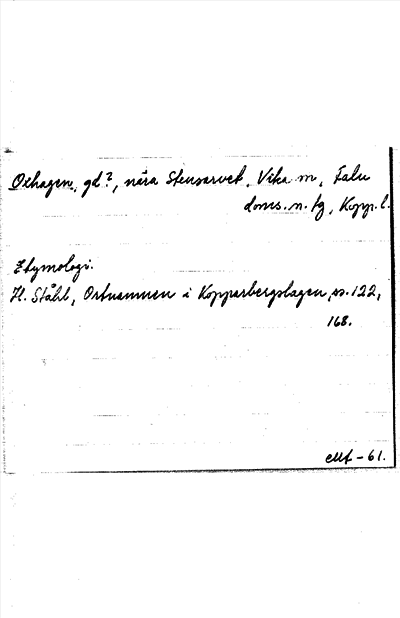 Oxhagen, gd?, nära Stensarvet, Vika sn, Falu
doms. n. tg, Kopp. l.
Etymologi.
H. Ståhl, Ortnamnen i Kopparbergslagen, ss. 122,
168.
-61.